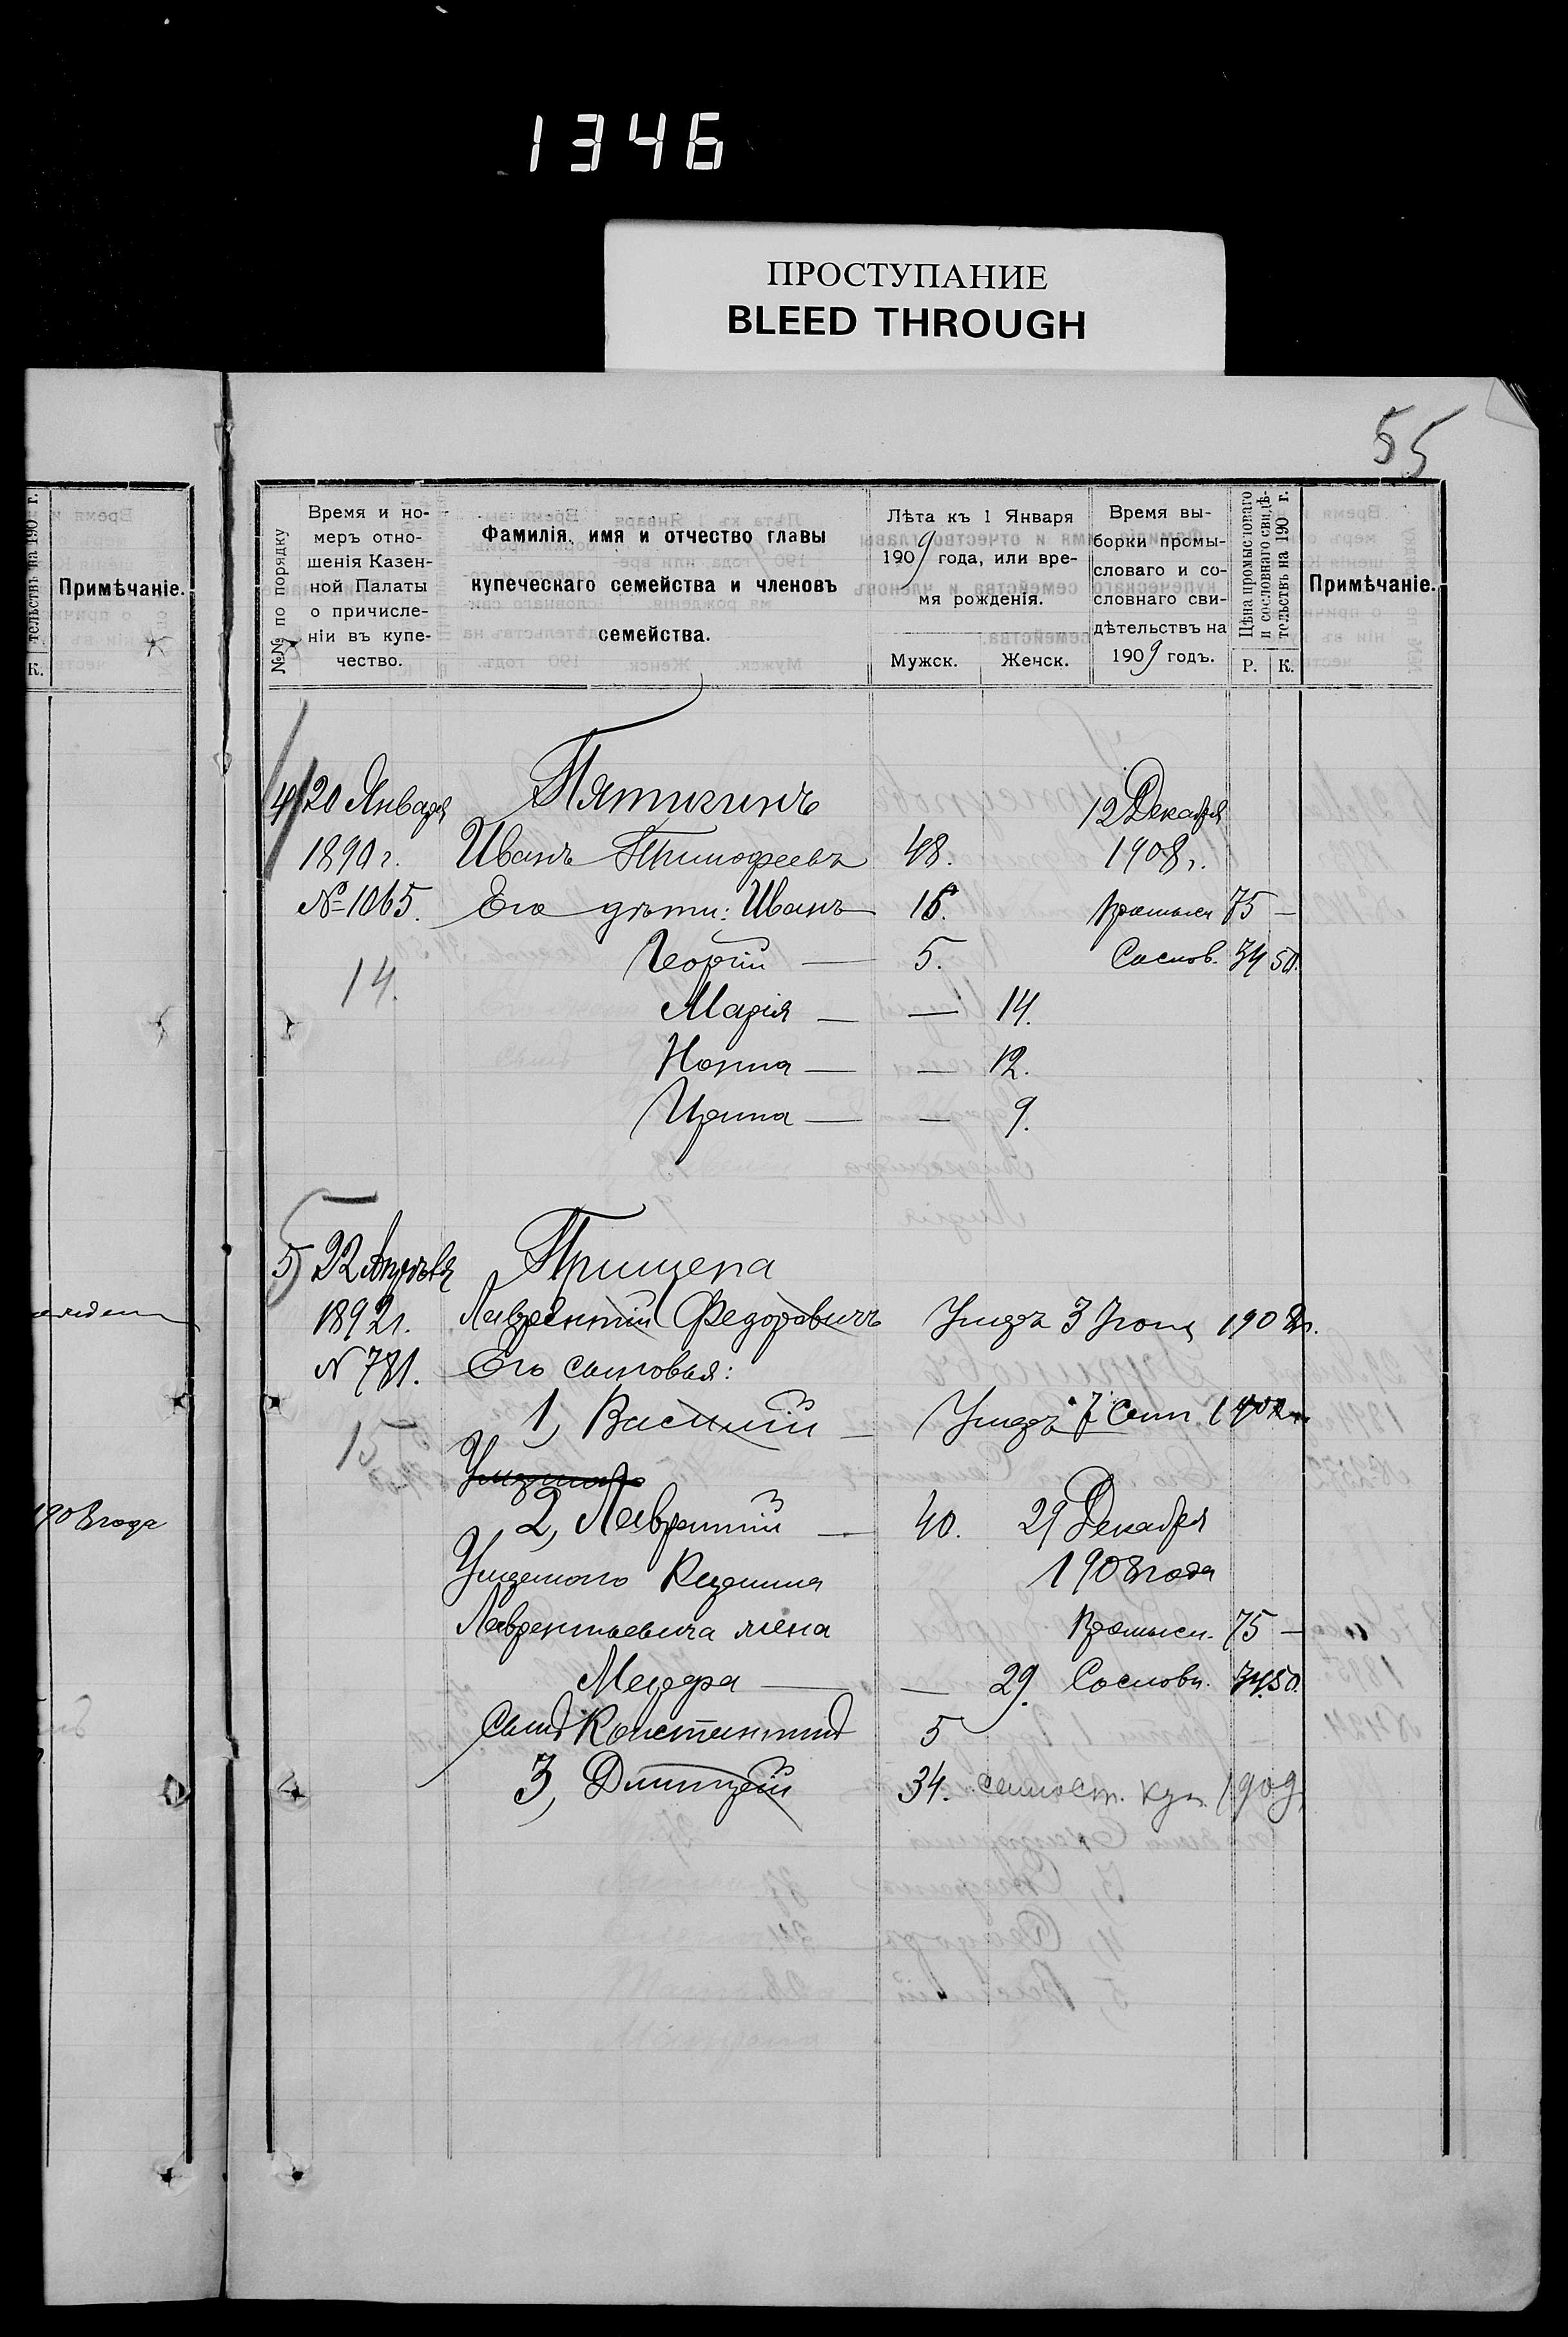 1346
ПРОСТУПАНИЕ
BLEED THROUGH
55
тельствъ на 190 г.
К.
Примѣчаніе.
1908 года
№№ по порядку
Время и но-
меръ отно-
шенія Казен-
ной Палаты
о причисле-
ніи въ купе-
чество.
Фамилія, имя и отчество главы
купеческаго семейства и членовъ
семейства.
Лѣта къ 1 Января
1909 года, или вре-
мя рожденія.
Мужск.
Женск.
Время вы-
борки промы-
словаго и со-
словнаго сви-
дѣтельствъ на
1909 годъ.
Цѣна промысловаго
и сословнаго свидѣ-
тельствъ на 190 г.
Р.
К.
Примѣчаніе.
4) 20 Января Пятигинъ 12 Декабря
1890 г. Иванъ Тимофеевъ 48. 1908 г.
№ 1065. Его дѣти: Иванъ 15. Промысл 75 —
Георгій — 5. Сослов. 34 50.
14.
Марія — — 14.
Нонна — — 12.
Ирина — — 9.
5) 22 Апрѣля Прищепа
1892 г. Лаврентій Федоровичъ Умеръ 3 1908 г.
N 781. Его сыновья:
1, Василій — Умеръ 7 Сент.
15
Умершаго
2, Лаврентій — 40. 29 Декабря
Умершаго 1908 года
Лаврентьевича жена Промысл. 75 —
— — 29. Сословн. 34 50.
Сынъ Константинъ 5
3, Дмитрій 34. самост. куп. 1909